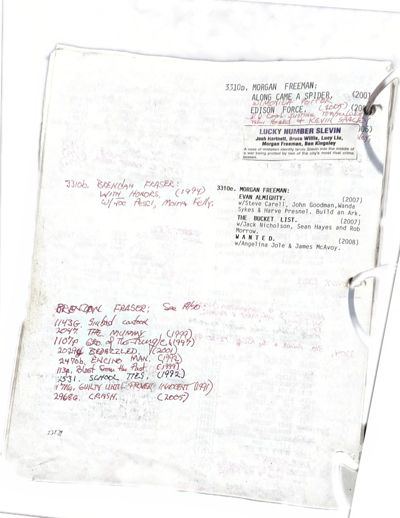 3310d. MORGAN FREEMAN:
ALONG CAME A SPIDER. (2001
w/MONICA POTTER
EDISON FORCE. (2005)
LL Cool Justin Timberlake
KEVIN SPACEY
LUCKY NUMBER SLEVIN
Josh Hartnett, Bruce Willis, Lucy Liu,
Morgan Freeman, Ben Kingsley
A case of mistaken identity lands Slevin into the middle of
a war being plotted by two of the city's most rival crime
3310b. BRENDAN FRASER:
WITH HONORS. (1994)
w/Joe Pesci, Moira Kelly.
3310e. MORGAN FREEMAN:
EVAN ALMIGHTY. (2007)
w/Steve Carell, John Goodman, Wanda
Sykes & Harve Presnel. Build an Ark.
THE BUCKET LIST. (2007)
w/Jack Nicholson, Sean Hayes and Rob
Morrow.
WANTED. (2008)
w/Angelina Jolie & James McAvoy.
BRENDAN FRASER: See Also:
1143G. Sinbad
2047. THE MUMMY. (1999)
1107P. GEO. of The Jungle. (1997)
2029 BEDAZZLED. (2000)
2470b. ENCINO MAN. (1992)
113p. Blast From the Past. (1999)
2531. SCHOOL TIES. (1992)
GUILTY UNTIL PROVEN INNOCENT (1991)
2968G. CRASH. (2005)